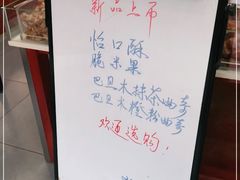 新品上市
怡口酥
脆米果
巴旦木抹茶曲奇
巴旦木橙粉曲奇
欢迎选购！